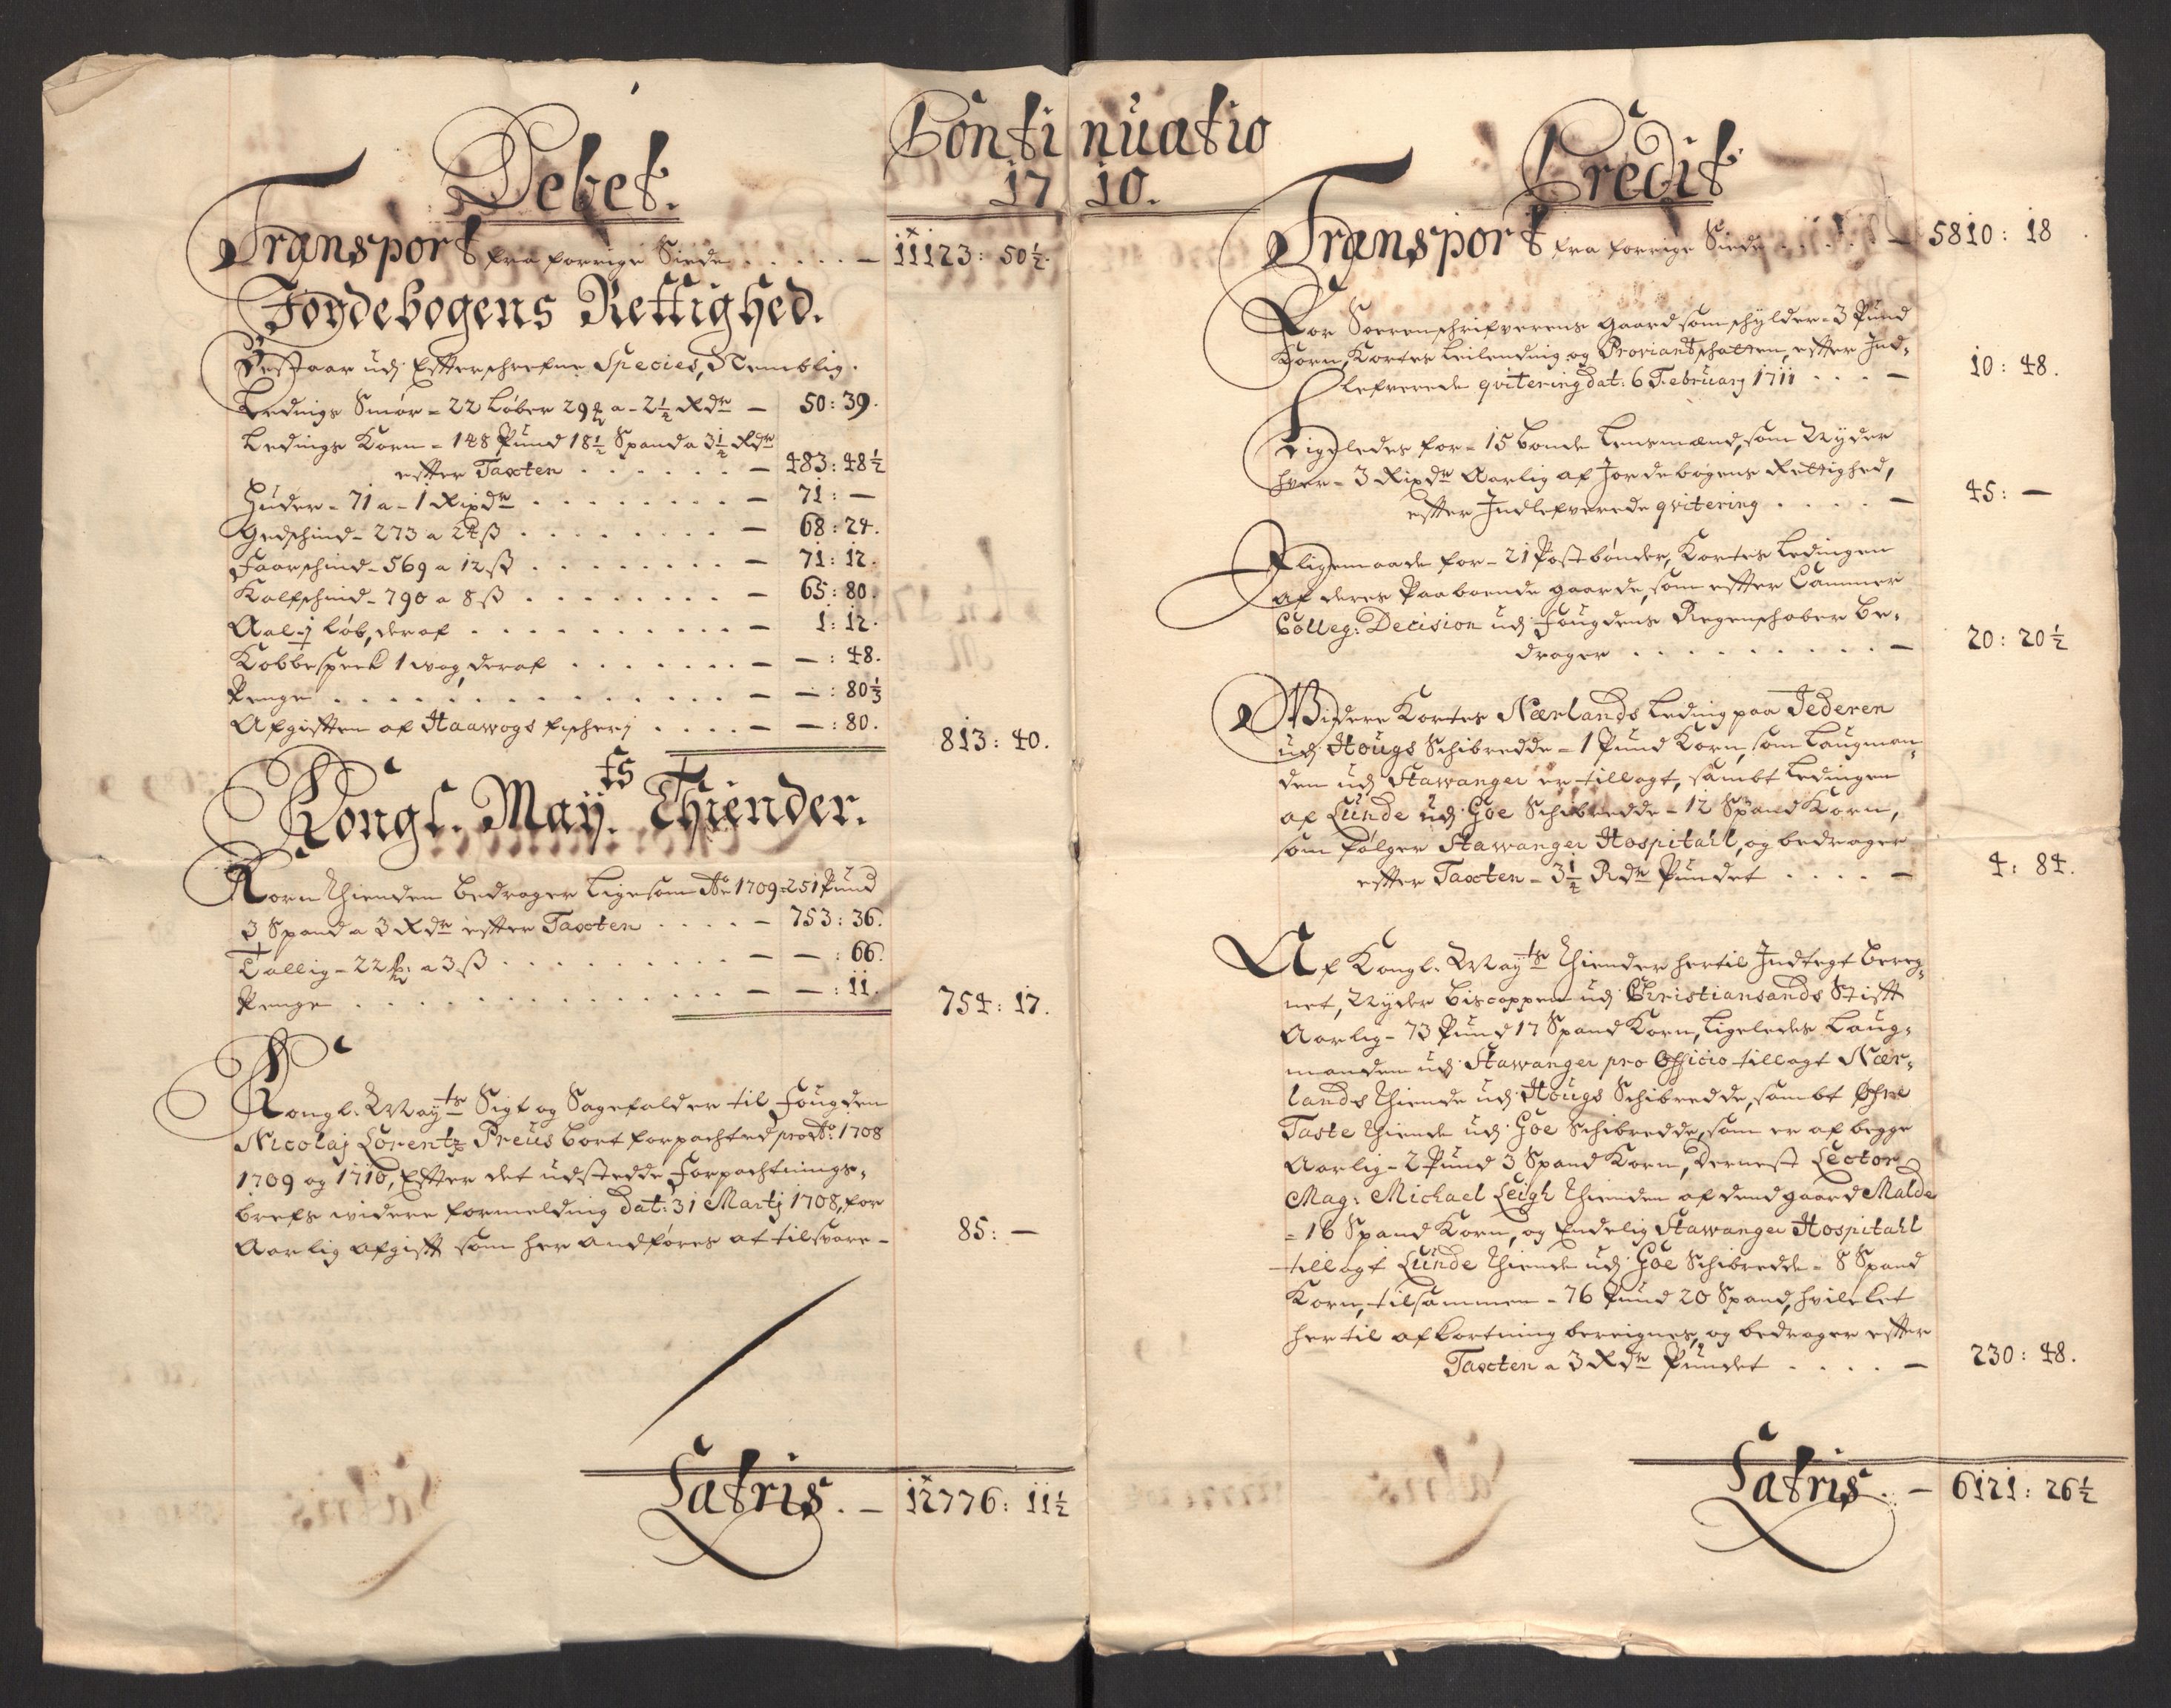 Continuatio
17 10.
Debet.
Transport fra forrige Siide . . . . . — 11123: 50½.
Jordebogens Rettighed.
Bestaar udj Effterschrefne Species, Nemblig.
Ledings Smør - 22 Løber 29 a - 2½ Rdr — 50: 39.
Ledings Korn - 148 Pund 18½ Spand a 3½ Rdr
effter Taxten . . . . . . — 483: 48½
Huder - 71 a - 1 Rixdr . . . . . . . . — 71: —
Gedschind - 273 a 24 ß . . . . . . . — 68: 24.
Faarschind - 569 a 12 ß . . . . . . . — 71: 12.
Kalfschind - 790 a 8 ß . . . . . . . . — 65: 80.
Aal - j Løb, deraf . . . . . . . . . . — 1: 12.
Kobbespeck 1 wog, deraf . . . . . . . — —: 48.
Penge . . . . . . . . . . . . . . . — —: 80⅓
Afgifften af Haawogs fischerj . . . . — —: 80.
813: 40.
Kongl. Mayts Thiender.
Korn Thienden bedrager ligesom Ao 1709 - 251 Pund
3 Spand a 3 Rdr effter Taxten . . . . — 753: 36.
Tallig - 22 a 3 ß . . . . . . . . . — —: 66.
Penge . . . . . . . . . . . . . . . — —: 11.
754: 17.
Kongl. Mayts Sigt og Sagefald er til Fougden
Nicolaj Lorentz Preus bort forpachted pro Ao 1708
1709 og 1710, Effter det udstedde Forpachtnings-
brefs widere formelding dat: 31 Martj 1708, for
Aarlig afgifft som her andføres at tilsvare - 85: —
Latris. — 12776: 11½
Credit
Transport fra forrige Siide . . . . . — 5810: 18
For Sorenschrifverens gaard som schylder - 3 Pund
Korn, Kortes Leilending og Proviantschatten, effter Ind-
lefverede qvitering dat: 6 Februarj 1711 . . . . — 10: 48.
Ligeledes for - 15 bonde Lensmænd, som Nyder
hver - 3 Rixdr Aarlig af Jordebogens Rettighed,
effter Indlefverede qvitering . . . . . — 45: —
I ligemaade for - 21 Postbønder, Kortes Ledingen
af deres Paaboende gaarde, som effter Cammer
Colleg: Decision udj Fougdens Regenschaber be-
drager . . . . . . . . . . — 20: 20½
Widere Kortes Nærlands Leding paa Jederen
udj Hougs Schibredde - 1 Pund Korn, som Laugman-
den udj Stawanger er tillagt, sambt Ledingen
af Lunde udj Goe Schibredde - 12 Spand Korn,
som følger Stawanger Hospitahl, og bedrager
effter Taxten - 3½ Rdr Pundet . . . . — 4: 84.
Af Kongl. Mayts Thiender hertil Indtegt bereg-
net, Nyder Biscoppen udj Christiansands Stifft
Aarlig - 73 Pund 17 Spand Korn, ligeledes Laug-
manden udj Stawanger pro Officio tillagt Nær-
lands Thiende udj Hougs Schibredde, sambt Øfre
Taste Thiende udj Goe Schibredde, som er af begge
Aarlig - 2 Pund 3 Spand Korn, Dernest Lector
Mag: Michael Leigh Thienden af dend gaard Malde
- 16 Spand Korn, og Endelig Stawanger Hospitahl
tillagt Lunde Thiende udj Goe Schibredde - 8 Spand
Korn, tilsammen - 76 Pund 20 Spand, hvilcket
her til afkortning bereignes, og bedrager effter
Taxten a 3 Rdr Pundet . . . . — 230: 48.
Latris. — 6121: 26½